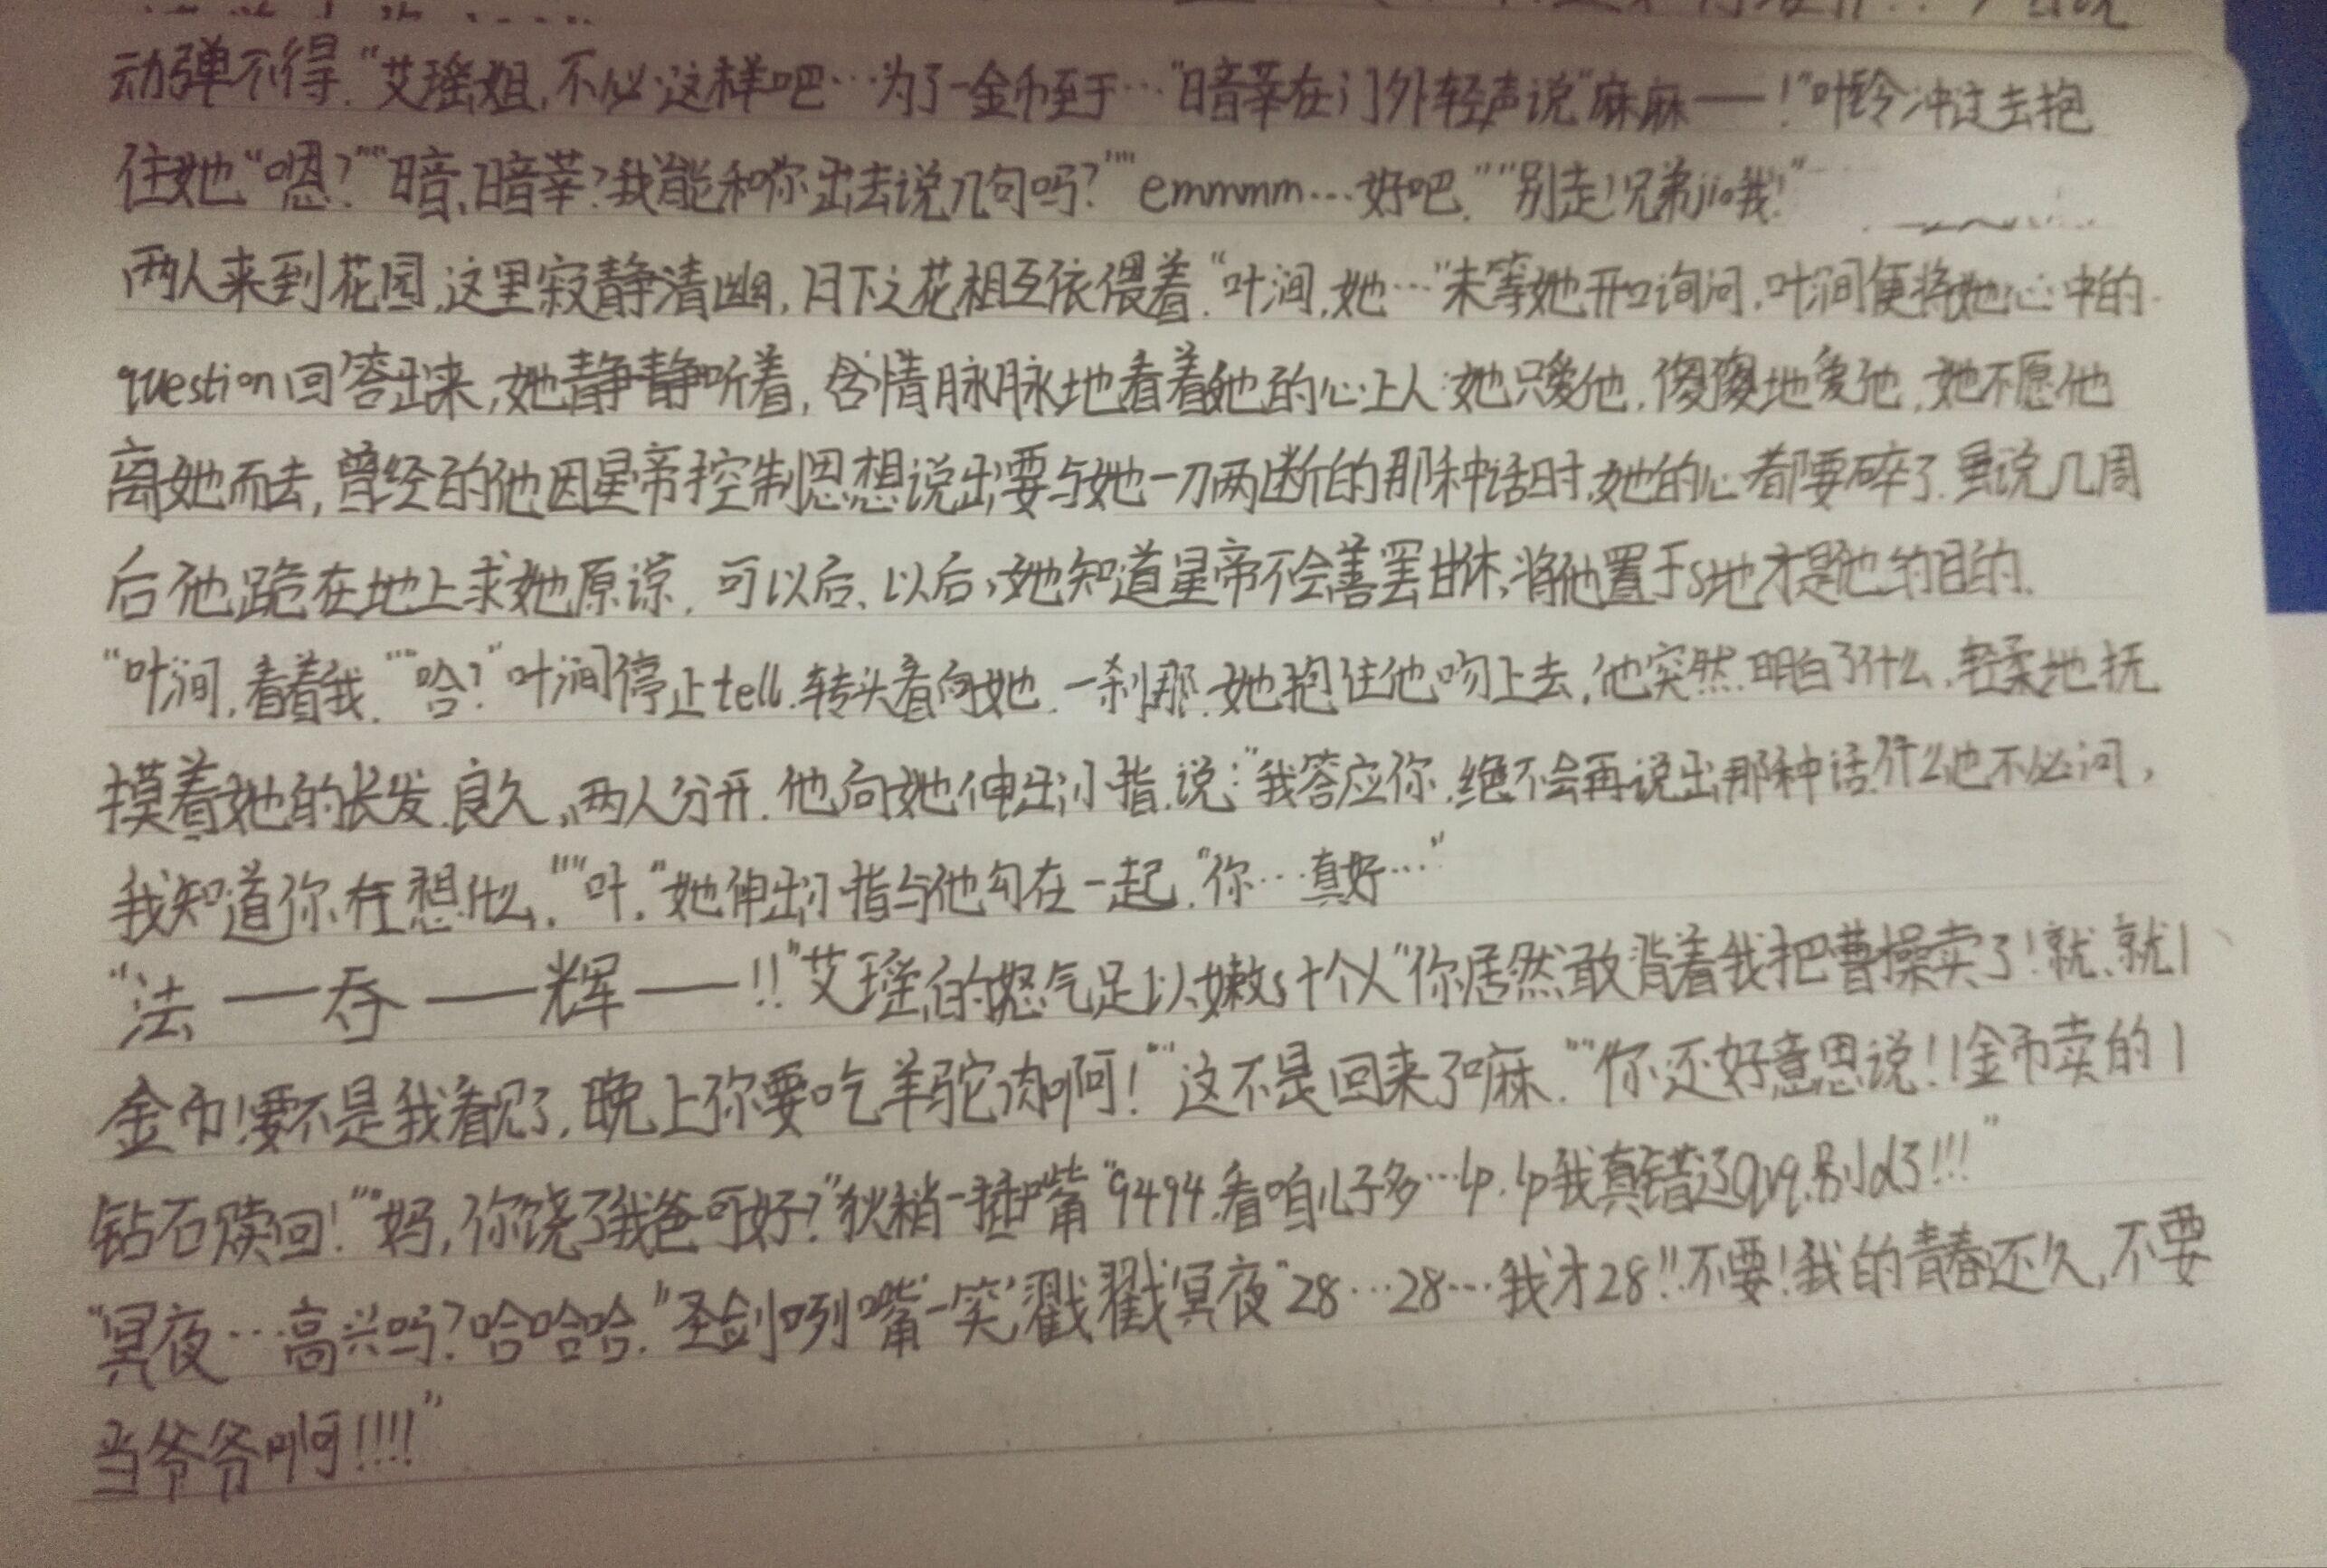 动弹不得."艾瑶姐,不必这样吧…为了一金币至于…"暗莘在门外轻声说"麻麻——!"叶铃冲过去抱
住她"嗯?""暗,暗莘?我能和你出去说几句吗?""emmmm…好吧.""别走!兄弟jio我!"
两人来到花园,这里寂静清幽,月下之花相互依偎着."叶涧,她…"未等她开口询问,叶涧便将她心中的
question回答出来,她静静听着,含情脉脉地看着她的心上人:她只爱他,傻傻地爱他,她不愿他
离她而去,曾经的他因星帝控制思想说出要与她一刀两断的那种话时,她的心都要碎了.虽说几周
后他跪在地上求她原谅,可以后、以后,她知道星帝不会善罢甘休,将他置于s地才是他的目的.
"叶涧,看着我.""哈?"叶涧停止tell.转头看向她.一刹那.她抱住他吻上去,他突然明白了什么,轻柔地抚
摸着她的长发.良久,两人分开.他向她伸出小指,说:"我答应你,绝不会再说出那种话.什么也不必问,
我知道你在想什么.""叶."她伸出小指与他勾在一起."你…真好…"
"法——吞——辉——!!"艾瑶的怒气足以嫩s十个人"你居然敢背着我把曹操卖了!就、就1
金币!要不是我看见了,晚上你要吃羊驼肉啊!""这不是回来了嘛.""你还好意思说!!1金币卖的1
钻石赎回!""妈,你饶了我爸可好?"狄稍一插嘴"9494.看咱儿子多…lp.lp我真错了QvQ.别d了!!!"
"冥夜…高兴吗?哈哈哈."圣剑咧嘴一笑戳戳冥夜"28…28…我才28!!不要!我的青春还久,不要
当爷爷啊!!!!"